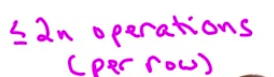 ≤ 2n operations
(per row)